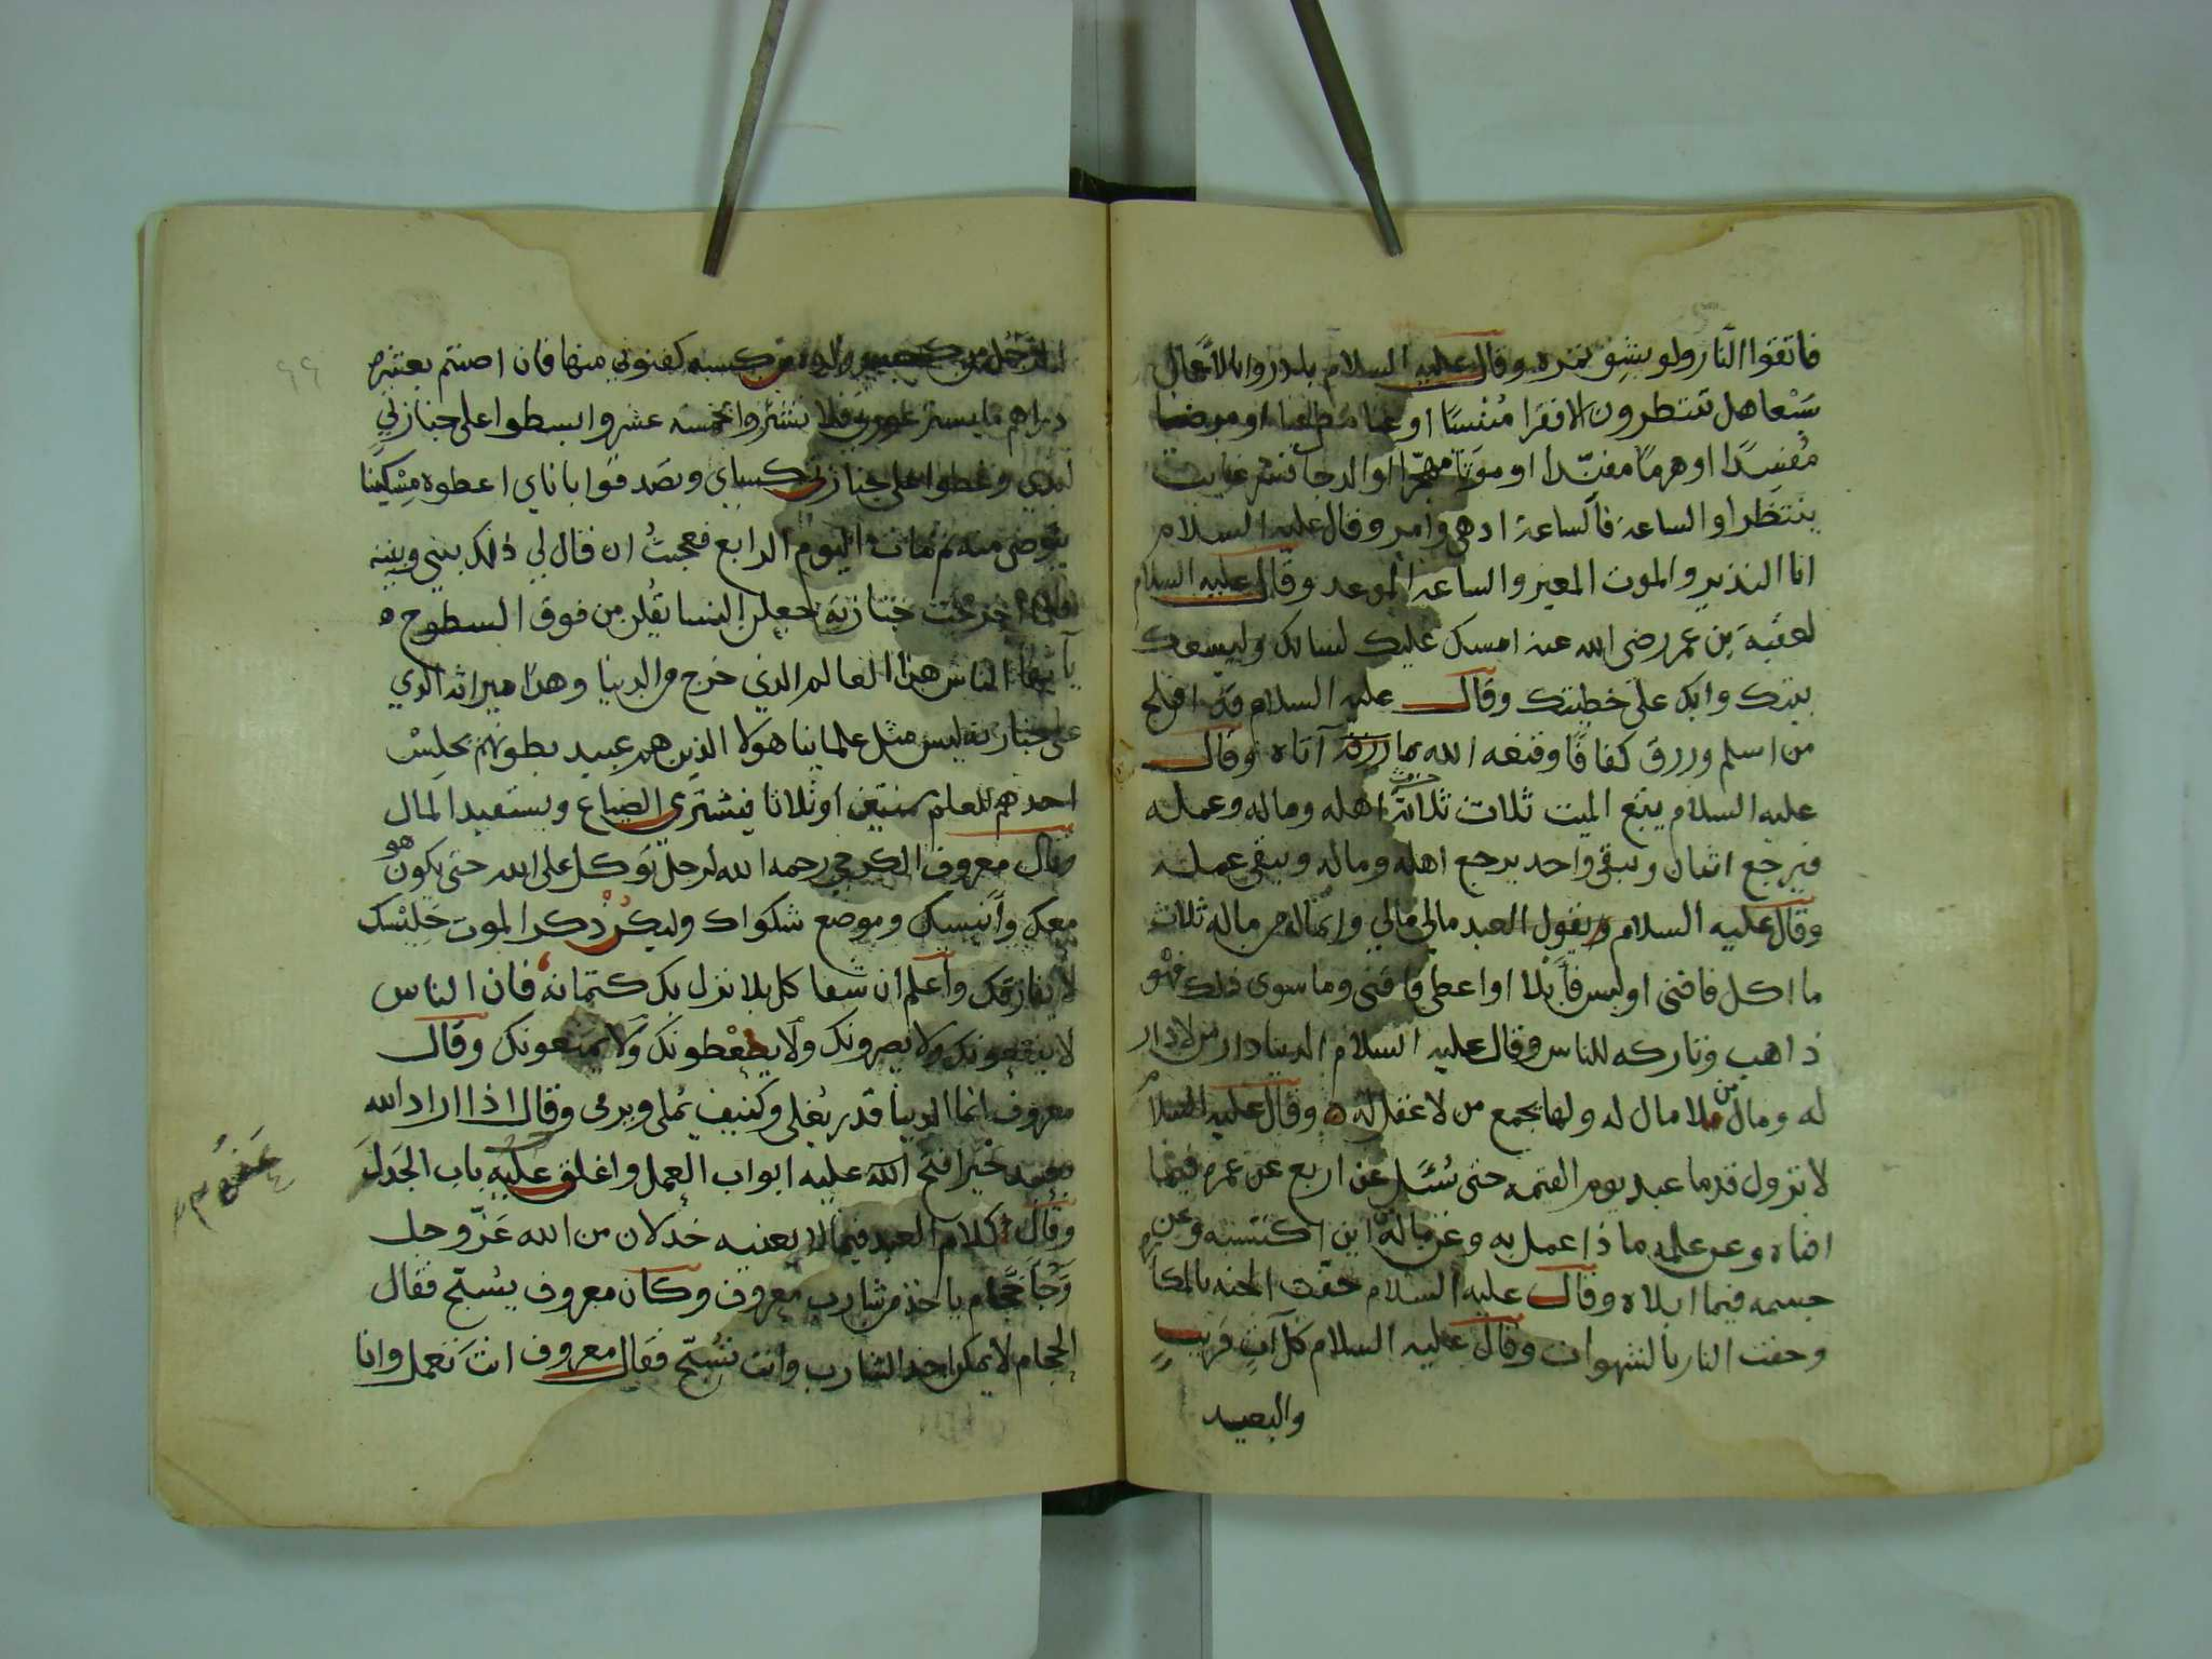 فاتقوا النار ولو بشق تمره وقال عليه السلام بادروا بالاعمال
سبعا هل تنتظرون الا فقرا منسيا او غنا مطغيا او مرضا
مفسدا او هرما مفندا او موتا مجهزا او الدجا فشر غايب
ينتظر او الساعة فالساعة ادهى وامر وقال عليه السلام
انا النذير والموت المغير والساعة الموعد وقال عليه السلام
لعقبة بن عمر رضى الله عنه امسك عليك لسانك وليسعك
بيتك وابك على خطيتك وقال عليه السلام قد افلح
من اسلم ورزق كفافا وقنعه الله بما رزقه آتاه وقال
عليه السلام يتبع الميت ثلاث ثلاثة اهله وماله وعمله
فيرجع اثنان ويبقى واحد يرجع اهله وماله ويبقى عمله
وقال عليه السلام يقول العبد مالى مالي وانما له من ماله ثلاث
ما اكل فافنى او لبس فأبلا او اعطى فاقنى وما سوى ذلك فهو
ذاهب وتاركه للناس وقال عليه السلام الدنيا دار من لا دار
له ومال من لا مال له ولها يجمع من لا عقل له ه وقال عليه السلام
لا تزول قدما عبد يوم القيمه حتى يسئل عن اربع عن عمره فيما
افناه وعن علمه ماذا عمل به وعن ماله اين اكتسبه وعن
جسمه فيما ابلاه وقال عليه السلام حفت الجنه بالمكا
وحفت النار بالشهوات وقال عليه السلام كل آت قريب
والبعيد
الرجل من كسبه كفنونى منها فان اصبتم بعشره
دراهم ما يستر عورتى فلا تشتروا بخمسة عشر وابسطوا على جنازتي
لبدي وغطوا على جنازتى كساي وتصدقوا باناي اعطوه مسكينا
يتوضى منه ثم مات فى اليوم الرابع فعجبت ان قال لي ذلك بينى وبينه
فلما اخرجت جنازته جعلن النسا يقلن من فوق السطوح ه
يا ايها الناس هذا العالم الذي خرج من الدنيا وهذا ميراثه الذي
على جنازته ليس مثل علماينا هولا الذين هم عبيد بطونهم يجلس
احدهم للعلم سنتين او ثلاثا فيشترى الضياع ويستفيد المال
وقال معروف الكرخى رحمه الله لرجل توكل على الله حتى يكون هو
معك وأنيسك وموضع شكواك وليكن ذكر الموت جليسك
لا يفارقك واعلم ان شفا كل بلا نزل بك كتمانه فان الناس
لا ينفعونك ولا يضرونك ولا يعطونك ولا يمنعونك وقال
معروف انما الدنيا قدر يغلى وكنيف يملى ويرمى وقال اذا اراد الله
بعبد خيرا فتح الله عليه ابواب العمل واغلق عليه باب الجدل
وقال كلام العبد فيما لا يعنيه خذلان من الله عز وجل
وجا حجام ياخذ من شارب معروف وكان معروف يسبح فقال
الحجام لا يمكن اخذ الشارب وانت تسبح فقال معروف انت تعمل وانا